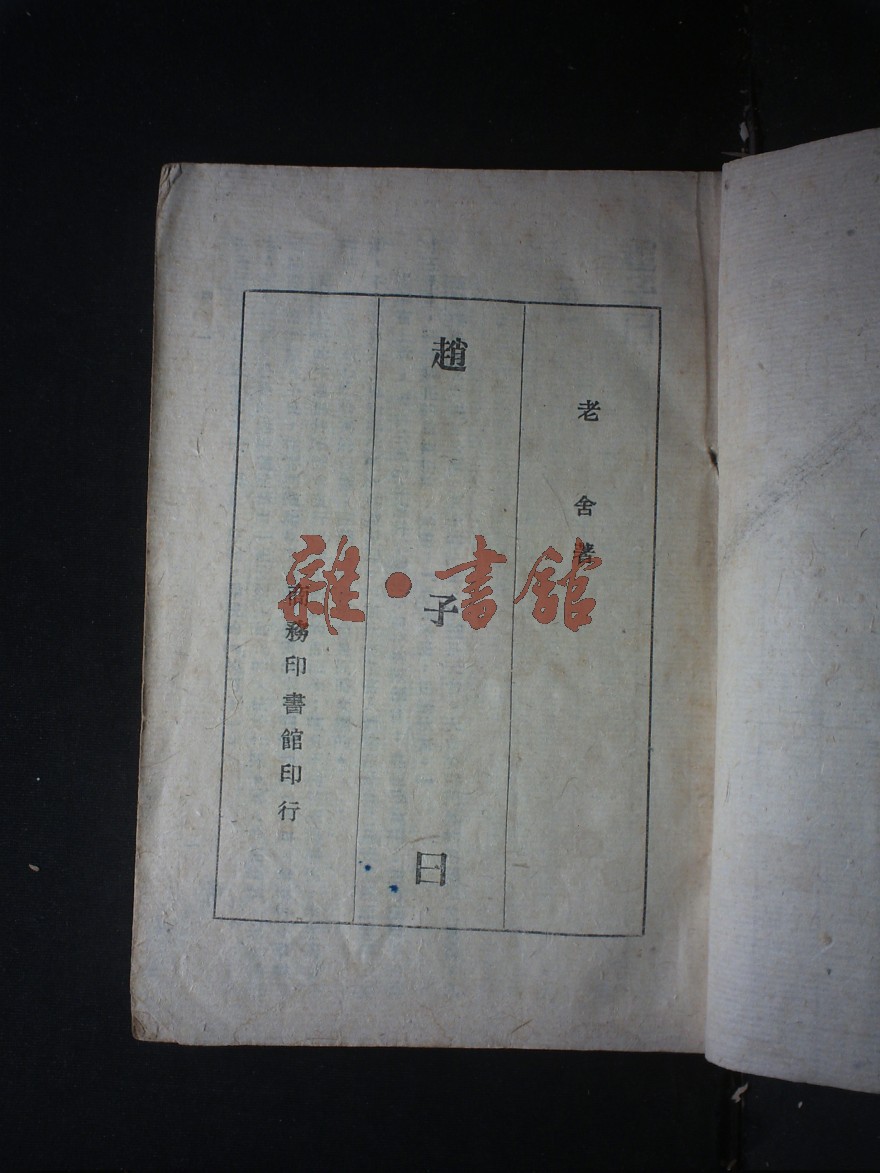 老舍著
趙子曰
商務印書館印行
雜·書館